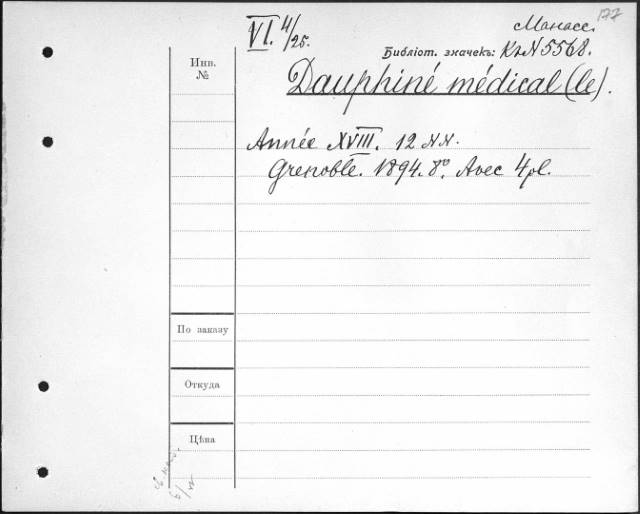 177
VI. 4/25.
Манасс.
Библіот. значекъ: Кл N 5568.
Инв.
№
Dauphiné médical (le).
Année XVIII. 12 NN.
Grenoble. 1894. 8º. Avec 4 pl.
По заказу
Откуда
Цѣна